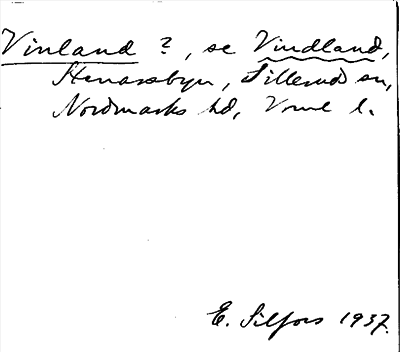 Vinland ?, se Vindland,
Stenarsbyn, Sillerud sn,
Nordmarks hd, Vrml l.
E. Silfors 1937.